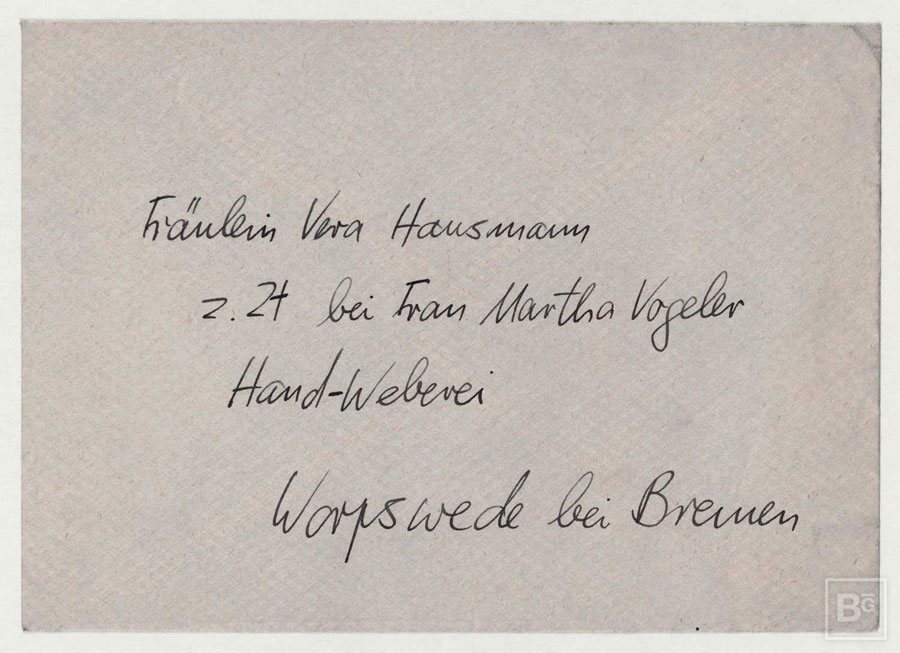 Fräulein Vera Hausmann
z. Zt bei Frau Martha Vogeler
Hand-Weberei
Worpswede bei Bremen
BG